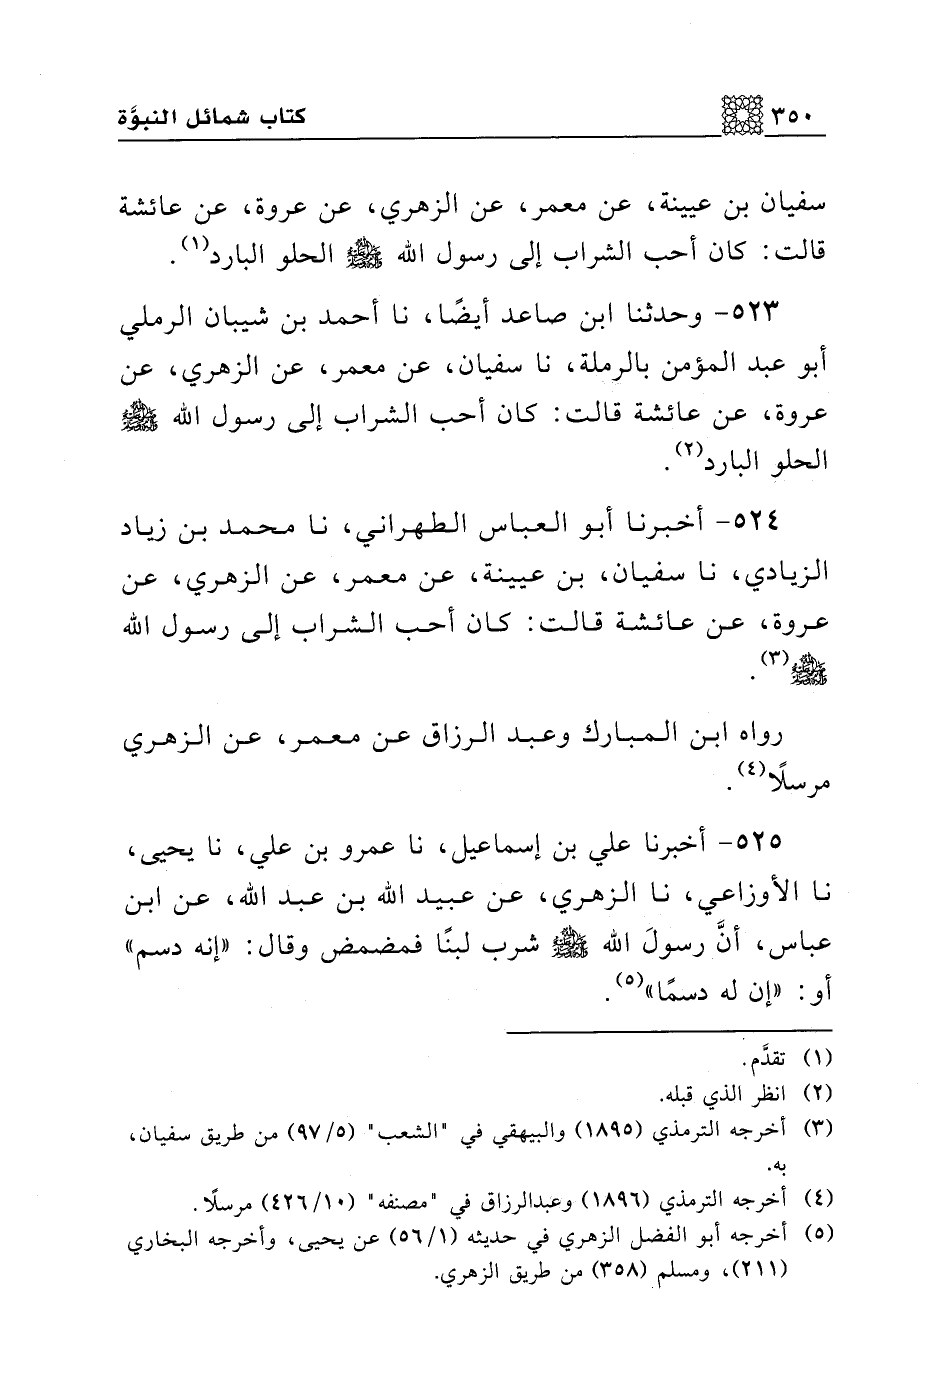 ٣٥٠ كتاب شمائل النبوَّة
سفيان بن عيينة، عن معمر، عن الزهري، عن عروة، عن عائشة
قالت: كان أحب الشراب إلى رسول الله ﷺ الحلو البارد(١).
٥٢٣- وحدثنا ابن صاعد أيضًا، نا أحمد بن شيبان الرملي
أبو عبد المؤمن بالرملة، نا سفيان، عن معمر، عن الزهري، عن
عروة، عن عائشة قالت: كان أحب الشراب إلى رسول الله ﷺ
الحلو البارد(٢).
٥٢٤- أخبرنا أبو العباس الطهراني، نا محمد بن زياد
الزيادي، نا سفيان، بن عيينة، عن معمر، عن الزهري، عن
عروة، عن عائشة قالت: كان أحب الشراب إلى رسول الله
ﷺ(٣).
رواه ابن المبارك وعبد الرزاق عن معمر، عن الزهري
مرسلًا(٤).
٥٢٥- أخبرنا علي بن إسماعيل، نا عمرو بن علي، نا يحيى،
نا الأوزاعي، نا الزهري، عن عبيد الله بن عبد الله، عن ابن
عباس، أنَّ رسولَ الله ﷺ شرب لبنًا فمضمض وقال: «إنه دسم»
أو: «إن له دسمًا»(٥).
(١) تقدَّم.
(٢) انظر الذي قبله.
(٣) أخرجه الترمذي (١٨٩٥) والبيهقي في "الشعب" (٩٧/٥) من طريق سفيان،
به.
(٤) أخرجه الترمذي (١٨٩٦) وعبدالرزاق في "مصنفه" (٤٢٦/١٠) مرسلًا.
(٥) أخرجه أبو الفضل الزهري في حديثه (٥٦/١) عن يحيى، وأخرجه البخاري
(٢١١)، ومسلم (٣٥٨) من طريق الزهري.